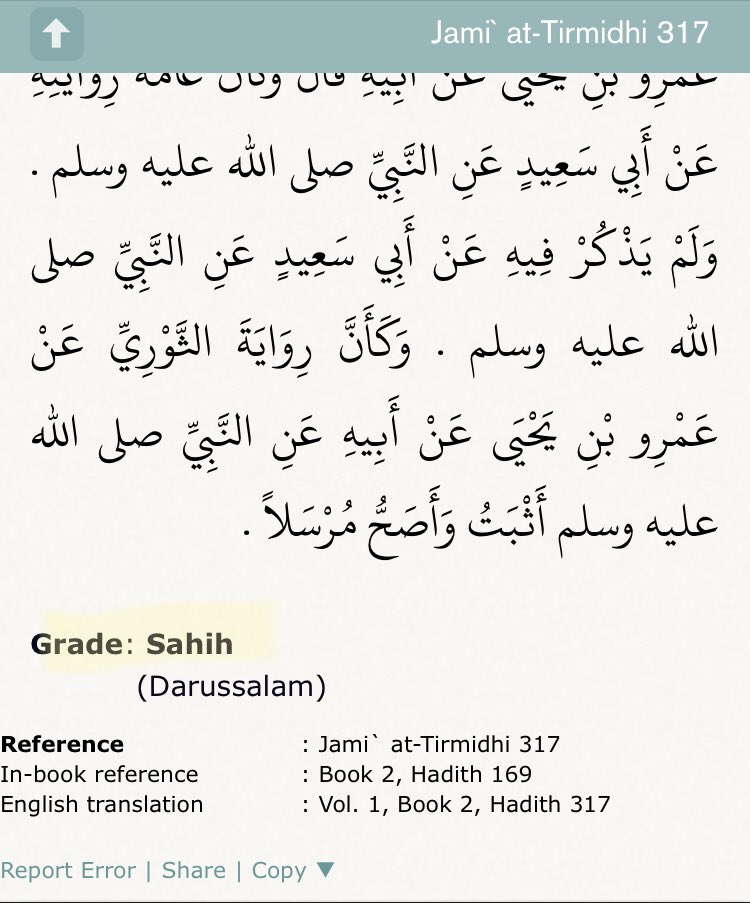 Jami` at-Tirmidhi 317
عَمْرِو بْنِ يَحْيَى عَنْ أَبِيهِ قَالَ وَكَانَ عَامَّةُ رِوَايَتِهِ
عَنْ أَبِي سَعِيدٍ عَنِ النَّبِيِّ صلى الله عليه وسلم .
وَلَمْ يَذْكُرْ فِيهِ عَنْ أَبِي سَعِيدٍ عَنِ النَّبِيِّ صلى
الله عليه وسلم . وَكَأَنَّ رِوَايَةَ الثَّوْرِيِّ عَنْ
عَمْرِو بْنِ يَحْيَى عَنْ أَبِيهِ عَنِ النَّبِيِّ صلى الله
عليه وسلم أَثْبَتُ وَأَصَحُّ مُرْسَلاً .
Grade: Sahih
(Darussalam)
Reference : Jami` at-Tirmidhi 317
In-book reference : Book 2, Hadith 169
English translation : Vol. 1, Book 2, Hadith 317
Report Error | Share | Copy ▼